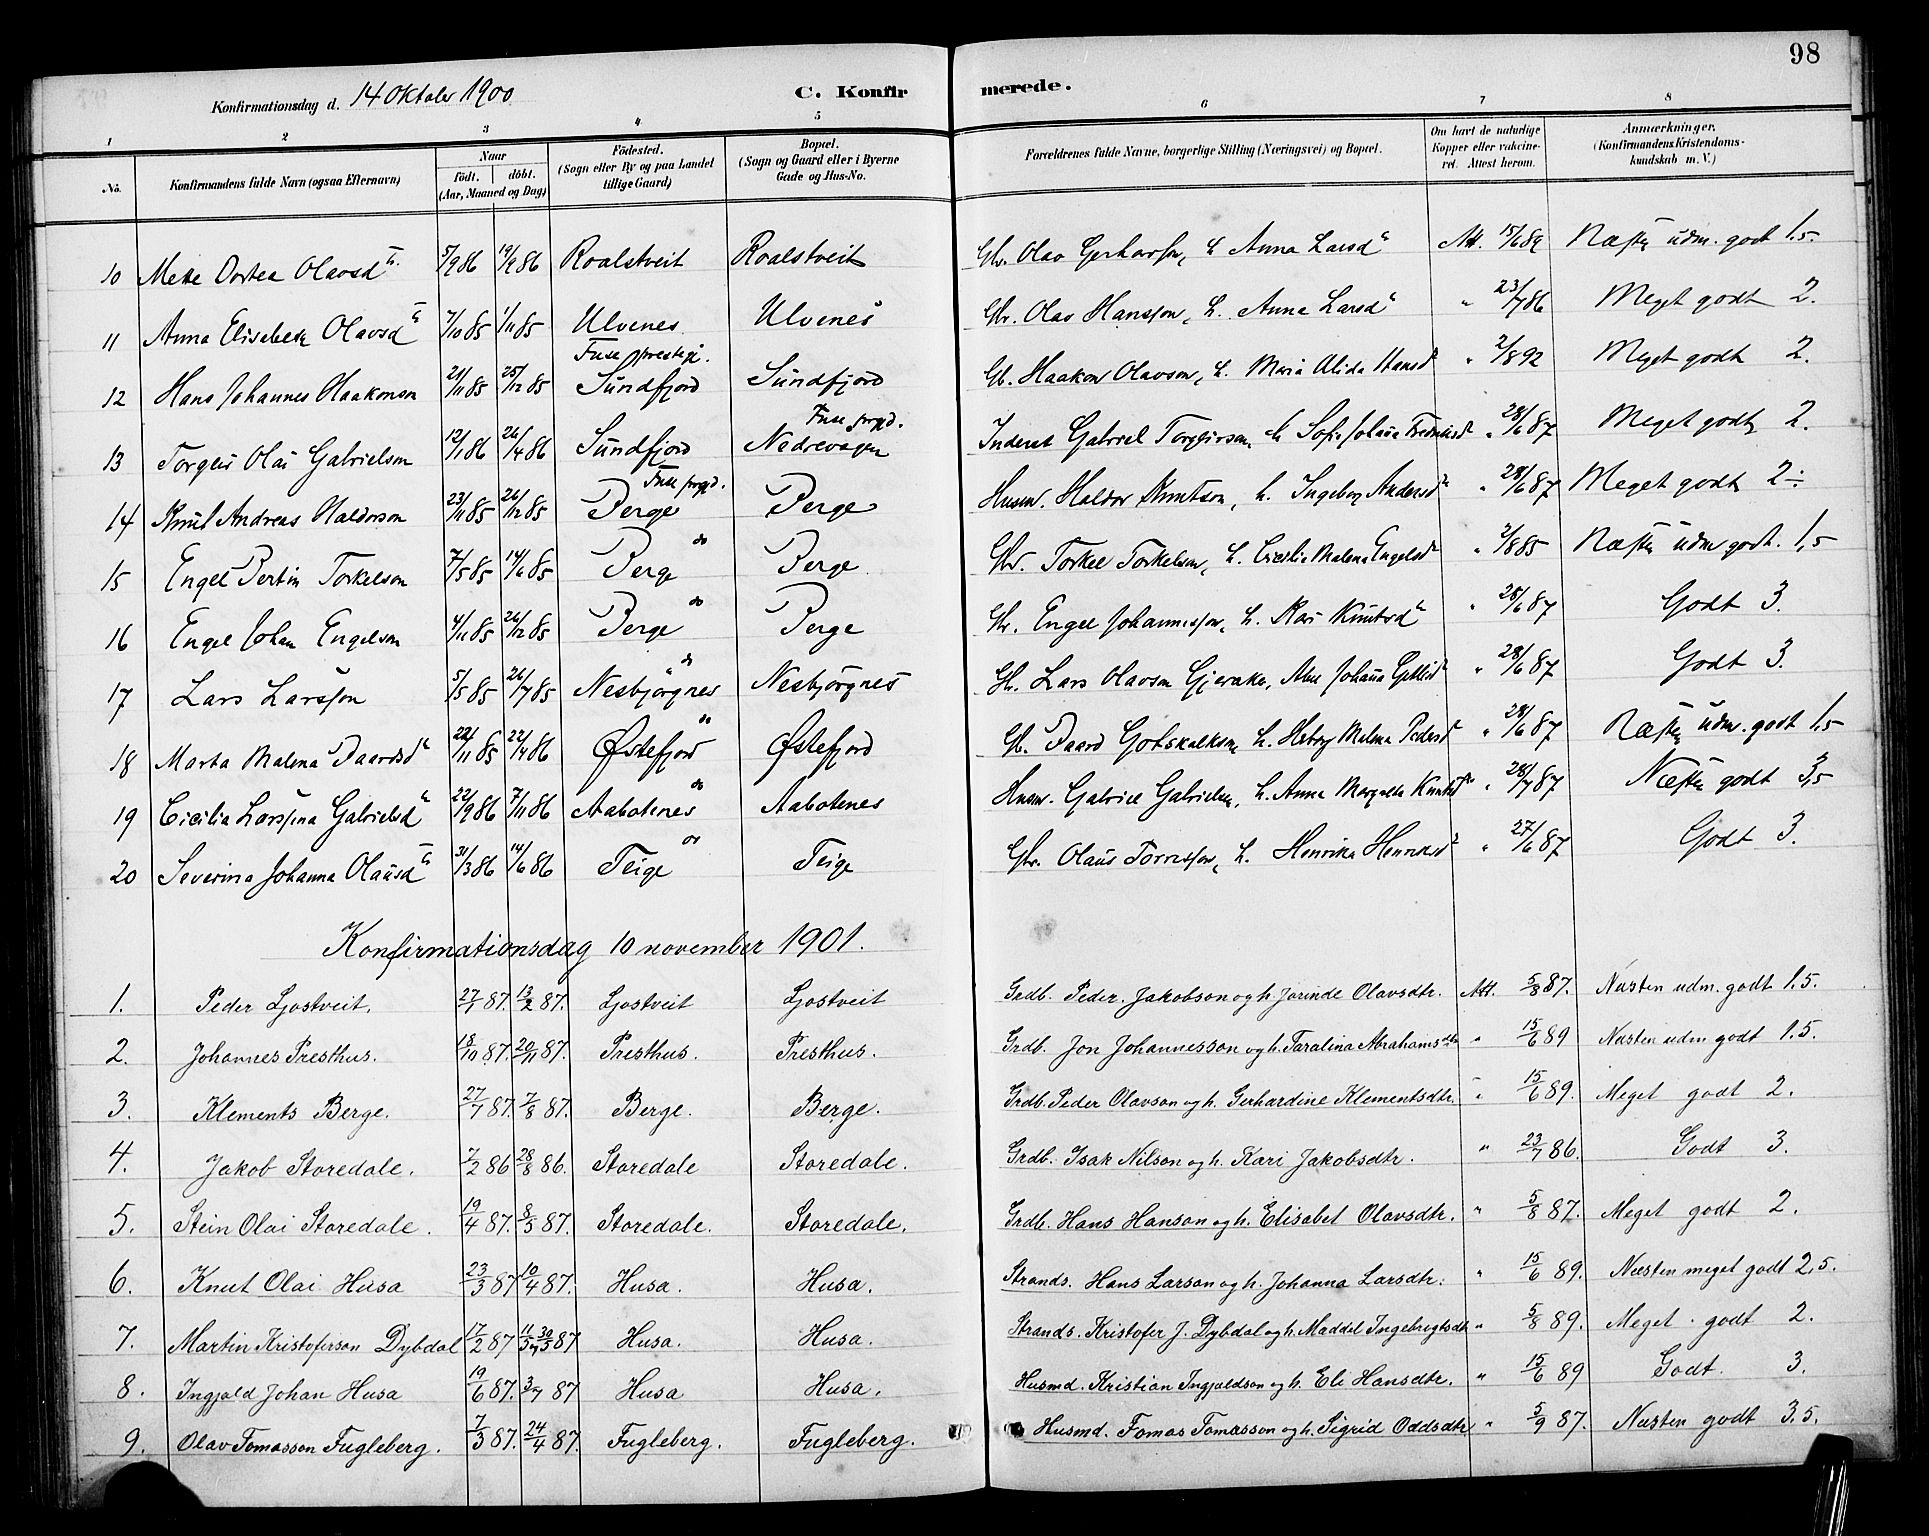 98
Konfirmationsdag d. 14 Oktober 1900 C. Konfirmerede.
1 2 3 4 5 6 7 8
No. Konfirmandens fulde Navn (ogsaa Efternavn) Naar födt. döbt. (Aar, Maaned og Dag) Födested. (Sogn eller By og paa Landet tillige Gaard) Bopæl. (Sogn og Gaard eller i Byerne Gade og Hus-No. Forældrenes fulde Navne, borgerlige Stilling (Næringsvei) og Bopæl. Om havt de naturlige Kopper eller vaccineret. Attest herom. Anmærkninger. (Konfirmandens Kristendomskundskab m. V.)
10 Mette Dortea Olavsdr 5/9 86 19/9 86 Roalstveit Roalstveit Gbr. Olav Gerharsson, h. Anna Larsdr Att. 15/6 89 Næsten udm. godt 1.5.
11 Anna Elisabeth Olavsdr 7/10 85 1/11 85 Ulvenes Ulvenes Gbr. Olav Hansson, h. Anna Larsdr " 23/7 86 Meget godt 2.
12 Hans Johannes Haakonson 21/11 85 25/12 85 Fuse prestegj. Sundfjord Sundfjord Gb. Haakon Olavson, h. Maria Alida Hansdr " 2/8 92 Meget godt 2.
13 Torgeir Olai Gabrielson 12/1 86 26/4 86 Sundfjord Fuse prgjd. Nedrevaagen Inderst Gabriel Torgeirson, h. Sofie Johanna Fredriksdr " 28/6 87 Meget godt 2.
14 Knut Andreas Haldorson 23/11 85 26/12 85 Fuse prgjd. Berge Berge Husm. Haldor Knutson, h. Ingeborg Andersdr " 28/6 87 Meget godt 2÷
15 Engel Bertin Torkelson 7/5 85 14/6 85 do Berge Berge Gbr. Torkel Torkelson, h. Cicilie Malena Engelsdr " 2/8 85 Næsten udm godt. 1,5
16 Engel Johan Engelson 4/11 85 26/12 85 do Berge Berge Gbr. Engel Johannesson, h. Kari Knutsdr " 28/6 87 Godt 3.
17 Lars Larsson 5/5 85 26/7 85 do Nesbjörgnes Nesbjörgnes Gb. Lars Olavson Gjeraker, Johanna " 28/6 87 Godt 3.
18 Marta Malena Baardsdr 22/11 85 22/4 86 do Østefjord Østefjord Gb. Baard Gotskalkson, h. Herborg Malena Pedersdr " 28/6 87 Næsten udm. godt 1.5
19 Cicilia Larssina Gabrielsdr 22/9 86 7/11 86 do Aabotenes Aabotenes Husm. Gabriel Gabrielsen, h. Anna Margrethe Knutsdr " 28/7 87 Næsten godt 3,5
20 Severina Johanna Olausdr 31/3 86 14/6 86 do Teige Teige Gbr. Olaus Torrisson, h. Henrika Henriksdr " 27/6 87 Godt 3.
Konfirmationsdag 10 november 1901.
1. Peder Ljostveit. 27/1 87. 13/2 87. Ljostveit Ljostveit Grdb. Peder Jakobson og h. Jorinde Olavsdtr. Att. 5/8 87. Næsten udm. godt 1.5.
2. Johannes Presthus. 18/10 87. 20/11 87. Presthus. Presthus. Grdb. Jon Johannesson og h. Taralina Abrahamsdtr " 15/6 89 Næsten udm godt 1.5.
3. Klements Berge. 27/7 87. 7/8 87. Berge. Berge. Grdb. Peder Olavson og h. Gerhardine Klementsdtr. " 15/6 89. Meget godt 2.
4. Jakob Storedale. 7/2 86 28/8 86. Storedale Storedale. Grdb. Isak Nilson og h. Kari Jakobsdtr. " 23/7 86. Godt 3.
5. Stein Olai Storedale. 19/4 87. 8/5 87. Storedale. Storedale. Grdb. Hans Hanson og h. Elisabet Olavsdtr. " 5/8 87. Meget godt 2.
6. Knut Olai Husa 23/3 87 10/4 87. Husa. Husa. Strands. Hans Larson og h. Johanna Larsdtr. " 15/6 89. Næsten meget godt 2,5.
7. Martin Kristoferson Dybdal 17/2 87 11/3 30/5 87 Husa. Husa. Strands. Kristofer J. Dybdal og h. Maddel Ingebrigtsdtr " 5/8 89. Meget godt 2.
8. Ingjald Johan Husa 19/6 87. 3/7 87 Husa Husa. Husmd. Kristian Ingjaldson og h. Eli Hansdtr. " 15/6 89 Godt. 3.
9. Olav Tomasson Fugleberg. 7/3 87. 24/4 87. Fugleberg. Fugleberg. Husmd. Tomas Tomasson og h. Sigrid Oddsdtr " 5/9 87. Næsten godt 3.5.